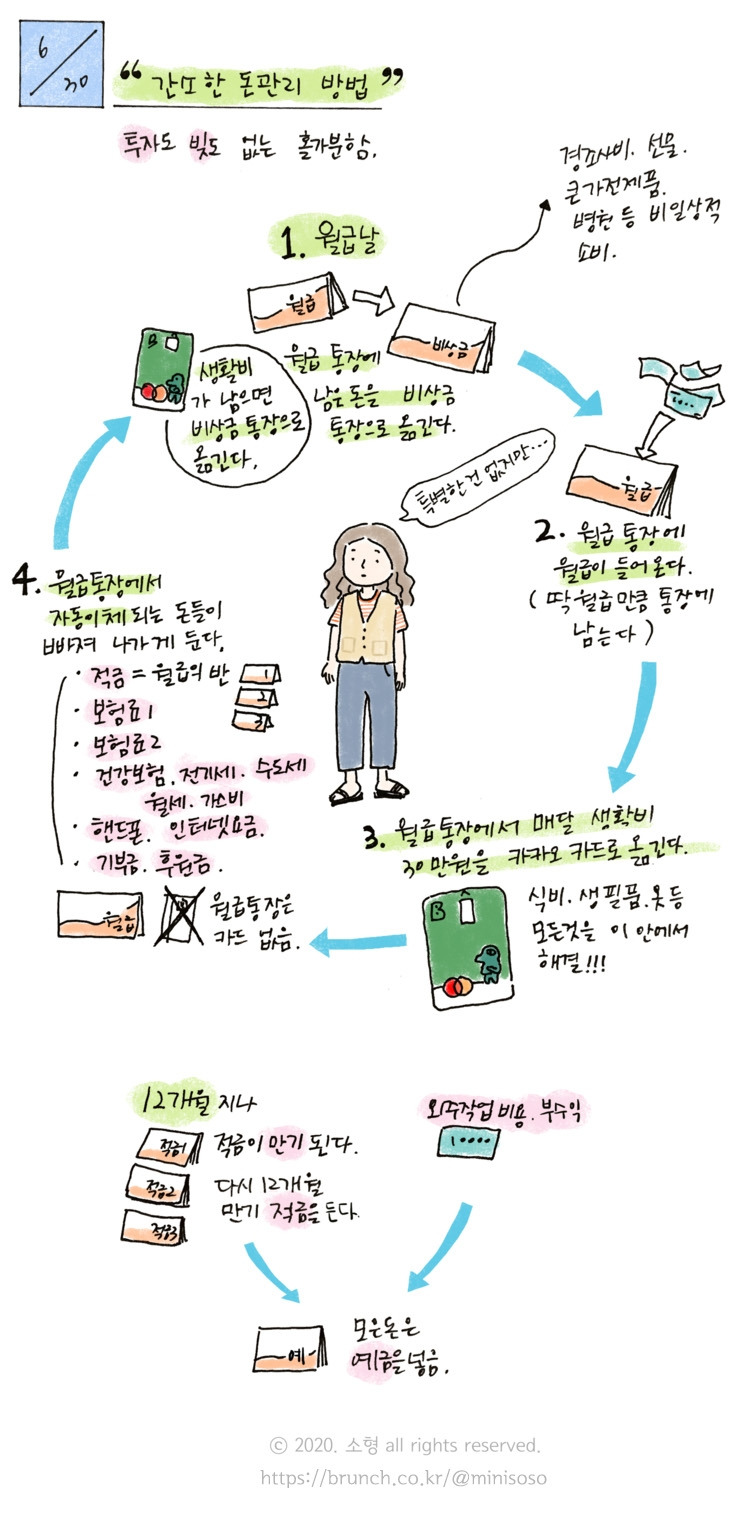 6/30
“간소한 돈관리 방법”
투자도 빚도 없는 홀가분함.
1. 월급날
월급
비상금
경조사비. 선물.
큰가전제품.
병원 등 비일상적
소비.
B
생활비
가 남으면
비상금 통장으로
옮긴다.
월급 통장에
남은 돈을 비상금
통장으로 옮긴다.
특별한 건 없지만...
월급
2. 월급 통장에
월급이 들어온다.
(딱 월급만큼 통장에
남는다)
3. 월급통장에서 매달 생활비
30만원을 카카오 카드로 옮긴다.
B
식비. 생필품. 옷등
모든것을 이 안에서
해결!!!
4. 월급통장에서
자동이체 되는 돈들이
빠져 나가게 둔다.
· 적금 = 월급의 반
1
2
3
· 보험료1
· 보험료2
· 건강보험. 전기세. 수도세
월세. 가스비
· 핸드폰. 인터넷요금.
· 기부금. 후원금.
월급
월급통장은
카드 없음.
12개월 지나
적금1
적금2
적금3
적금이 만기 된다.
다시 12개월
만기 적금을 든다.
외주작업 비용. 부수익
10000
예
모은돈은
예금을 넣음.
© 2020. 소형 all rights reserved.
https://brunch.co.kr/@minisoso